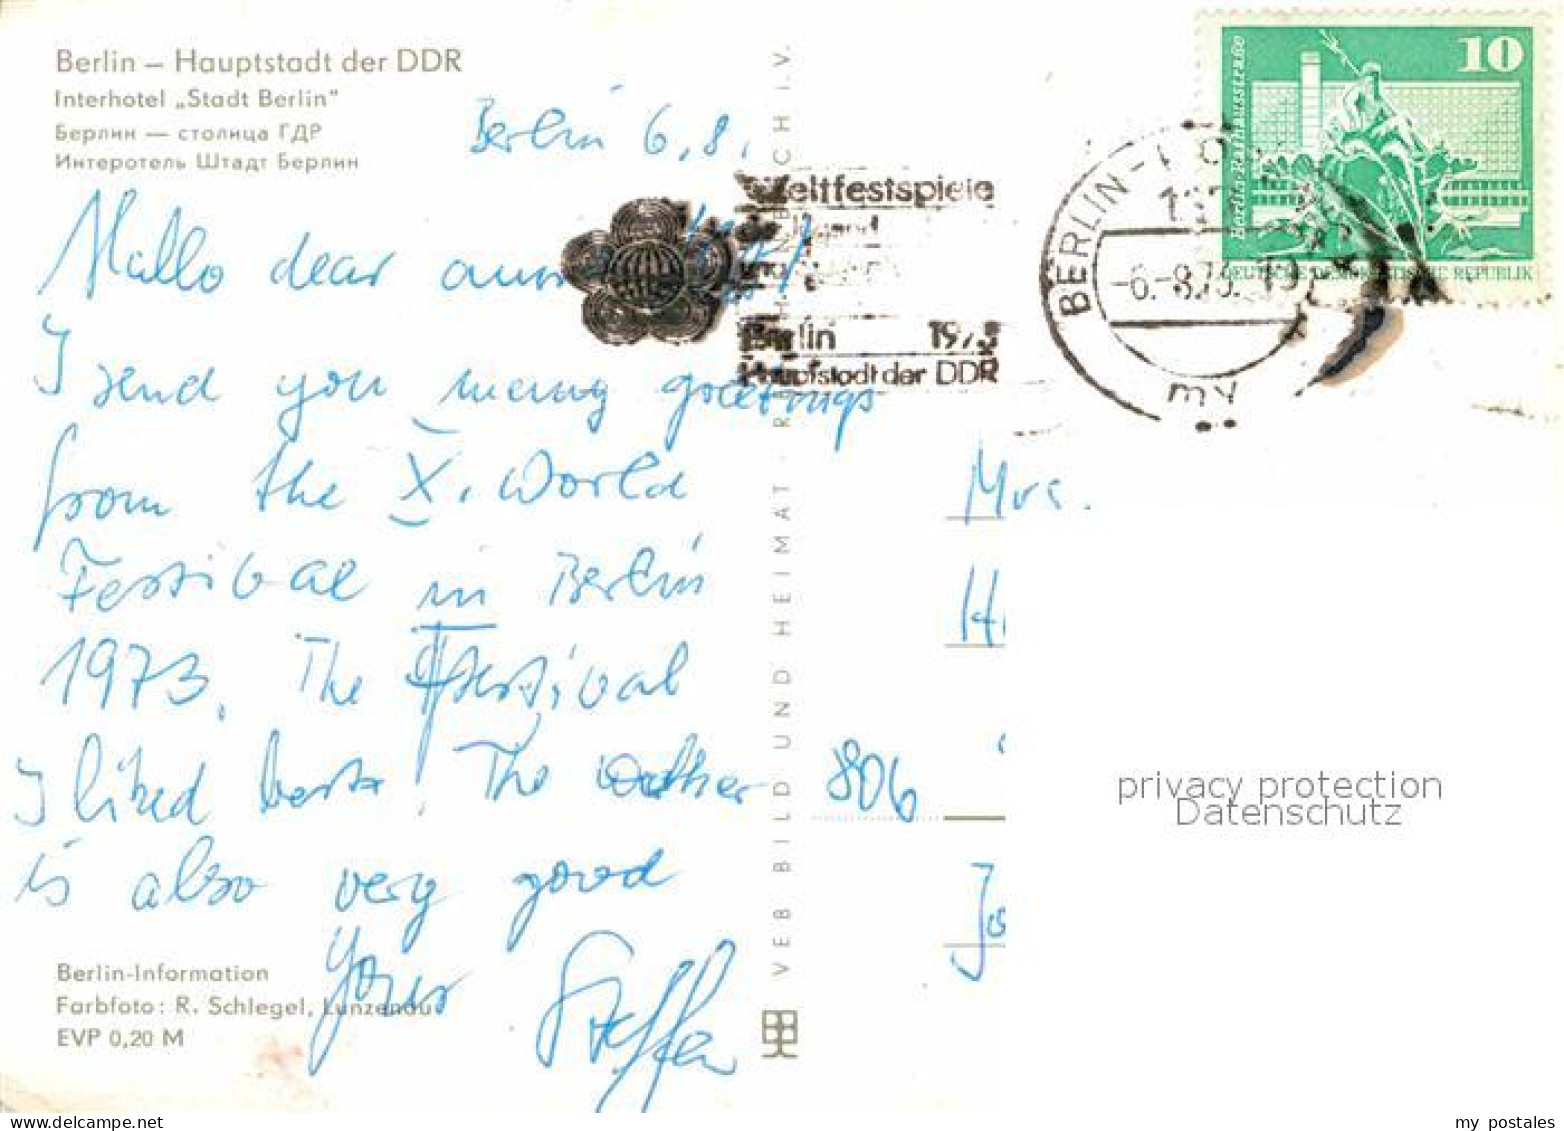 Berlin – Hauptstadt der DDR
Interhotel „Stadt Berlin“
Берлин — столица ГДР
Интеротель Штадт Берлин
Berlin 6.8.
Hallo dear
I send you many greetings
from the X. World
Festival in Berlin
1973. The festival
I liked best! The weather
is also very good
Yours Steffen
Berlin-Information
Farbfoto: R. Schlegel, Lunzenau
EVP 0,20 M
VEB BILD UND HEIMAT
Weltfestspiele
der Jugend
und
Berlin 1973
Hauptstadt der DDR
BERLIN-
-6.-8.73.
my
10
Berlin, Rathausstraße
DEUTSCHE DEMOKRATISCHE REPUBLIK
Mrs.
806
privacy protection
Datenschutz
www.delcampe.net
my postales